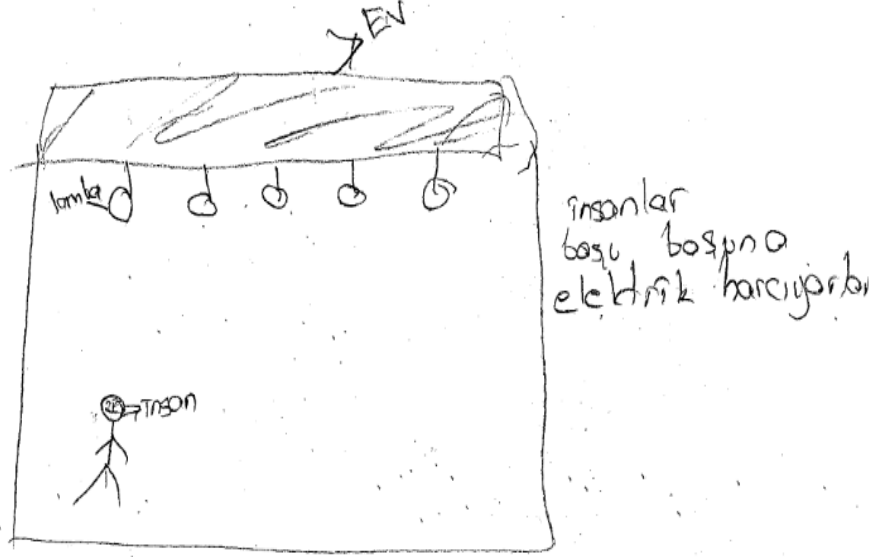 EV
lamba
insanlar
boşu boşuna
elektrik harcıyorlar
İnsan